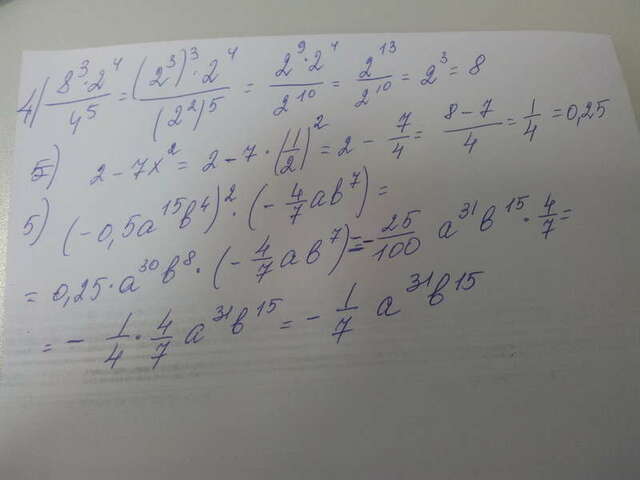 4) 8³·2⁴/4⁵ = (2³)³·2⁴/(2²)⁵ = 2⁹·2⁴/2¹⁰ = 2¹³/2¹⁰ = 2³ = 8
5) 2-7x² = 2-7·(1/2)² = 2 - 7/4 = 8-7/4 = 1/4 = 0,25
5) (-0,5a¹⁵b⁴)²·(-4/7ab⁷) =
= 0,25·a³⁰b⁸·(-4/7ab⁷) = -25/100 a³¹b¹⁵·4/7 =
= - 1/4·4/7 a³¹b¹⁵ = - 1/7 a³¹b¹⁵